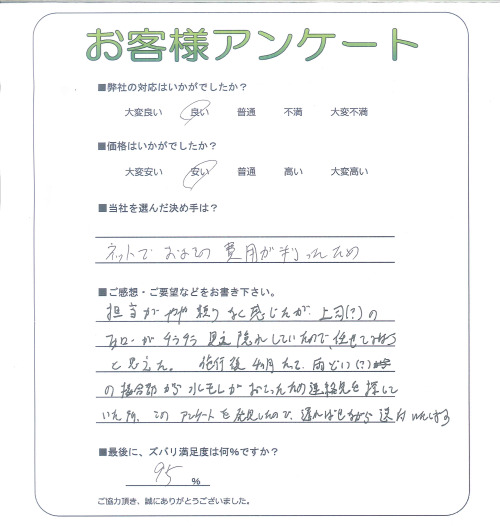 お客様アンケート
■弊社の対応はいかがでしたか？
大変良い 良い 普通 不満 大変不満
■価格はいかがでしたか？
大変安い 安い 普通 高い 大変高い
■当社を選んだ決め手は？
ネットでおよその費用が判ったため
■ご感想・ご要望などをお書き下さい。
担当がやや頼りなく感じたが、上司(?)の
フォローがチラチラ見え隠れしていたので、任せてみよう
と思えた。 施行後4ヶ月たって、雨どい(?)
の接合部から水モレがおこったため連絡先を探して
いた所、このアンケートを発見したので、遅ればせながら送付いたします
■最後に、ズバリ満足度は何%ですか？
95 %
ご協力頂き、誠にありがとうございました。